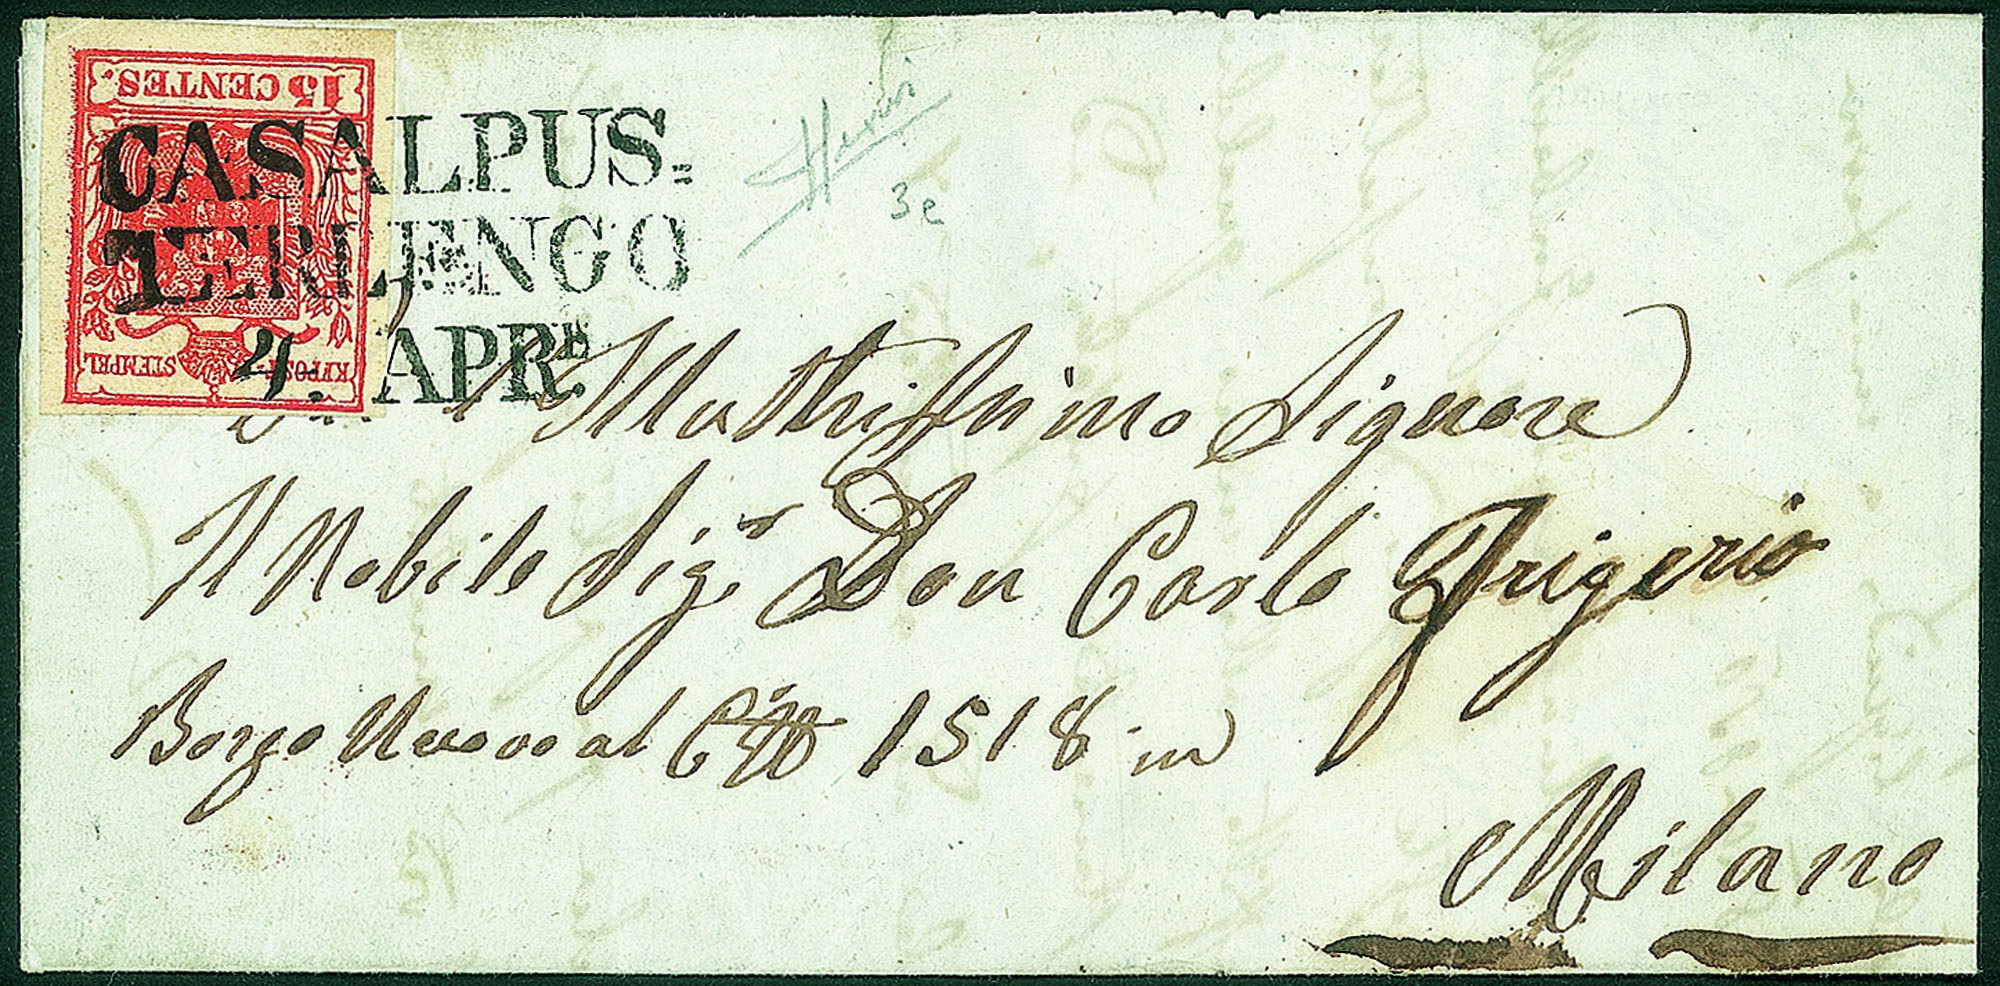 15 CENTES.
KK POST-
STEMPEL
CASALPUS=
TERLENGO
4. APR.E
3e
Illustrissimo Signore
Il Nobile Sig.r Don Carlo Frigerio
Borgo Nuovo al 1518 in
Milano